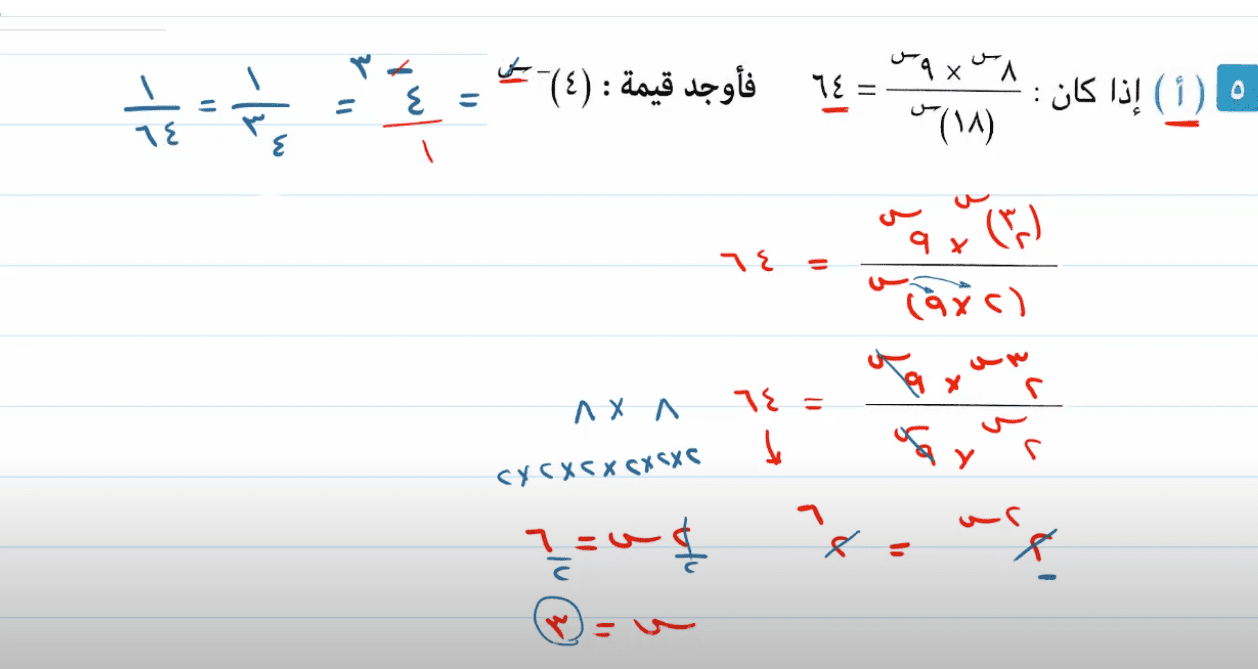 ٥ (أ) إذا كان : ٨^س × ٩^س / (١٨)^س = ٦٤ فأوجد قيمة : (٤)^-س = ٤^-٣ / ١ = ١ / ٤^٣ = ١ / ٦٤
(٢^٣)^س × ٩^س / (٢ × ٩)^س = ٦٤
٢^٣س × ٩^س / ٢^س × ٩^س = ٦٤ ٨ × ٨
٢×٢×٢×٢×٢×٢
٢^٢س = ٢^٦ ٢س / ٢ = ٦ / ٢
س = ٣